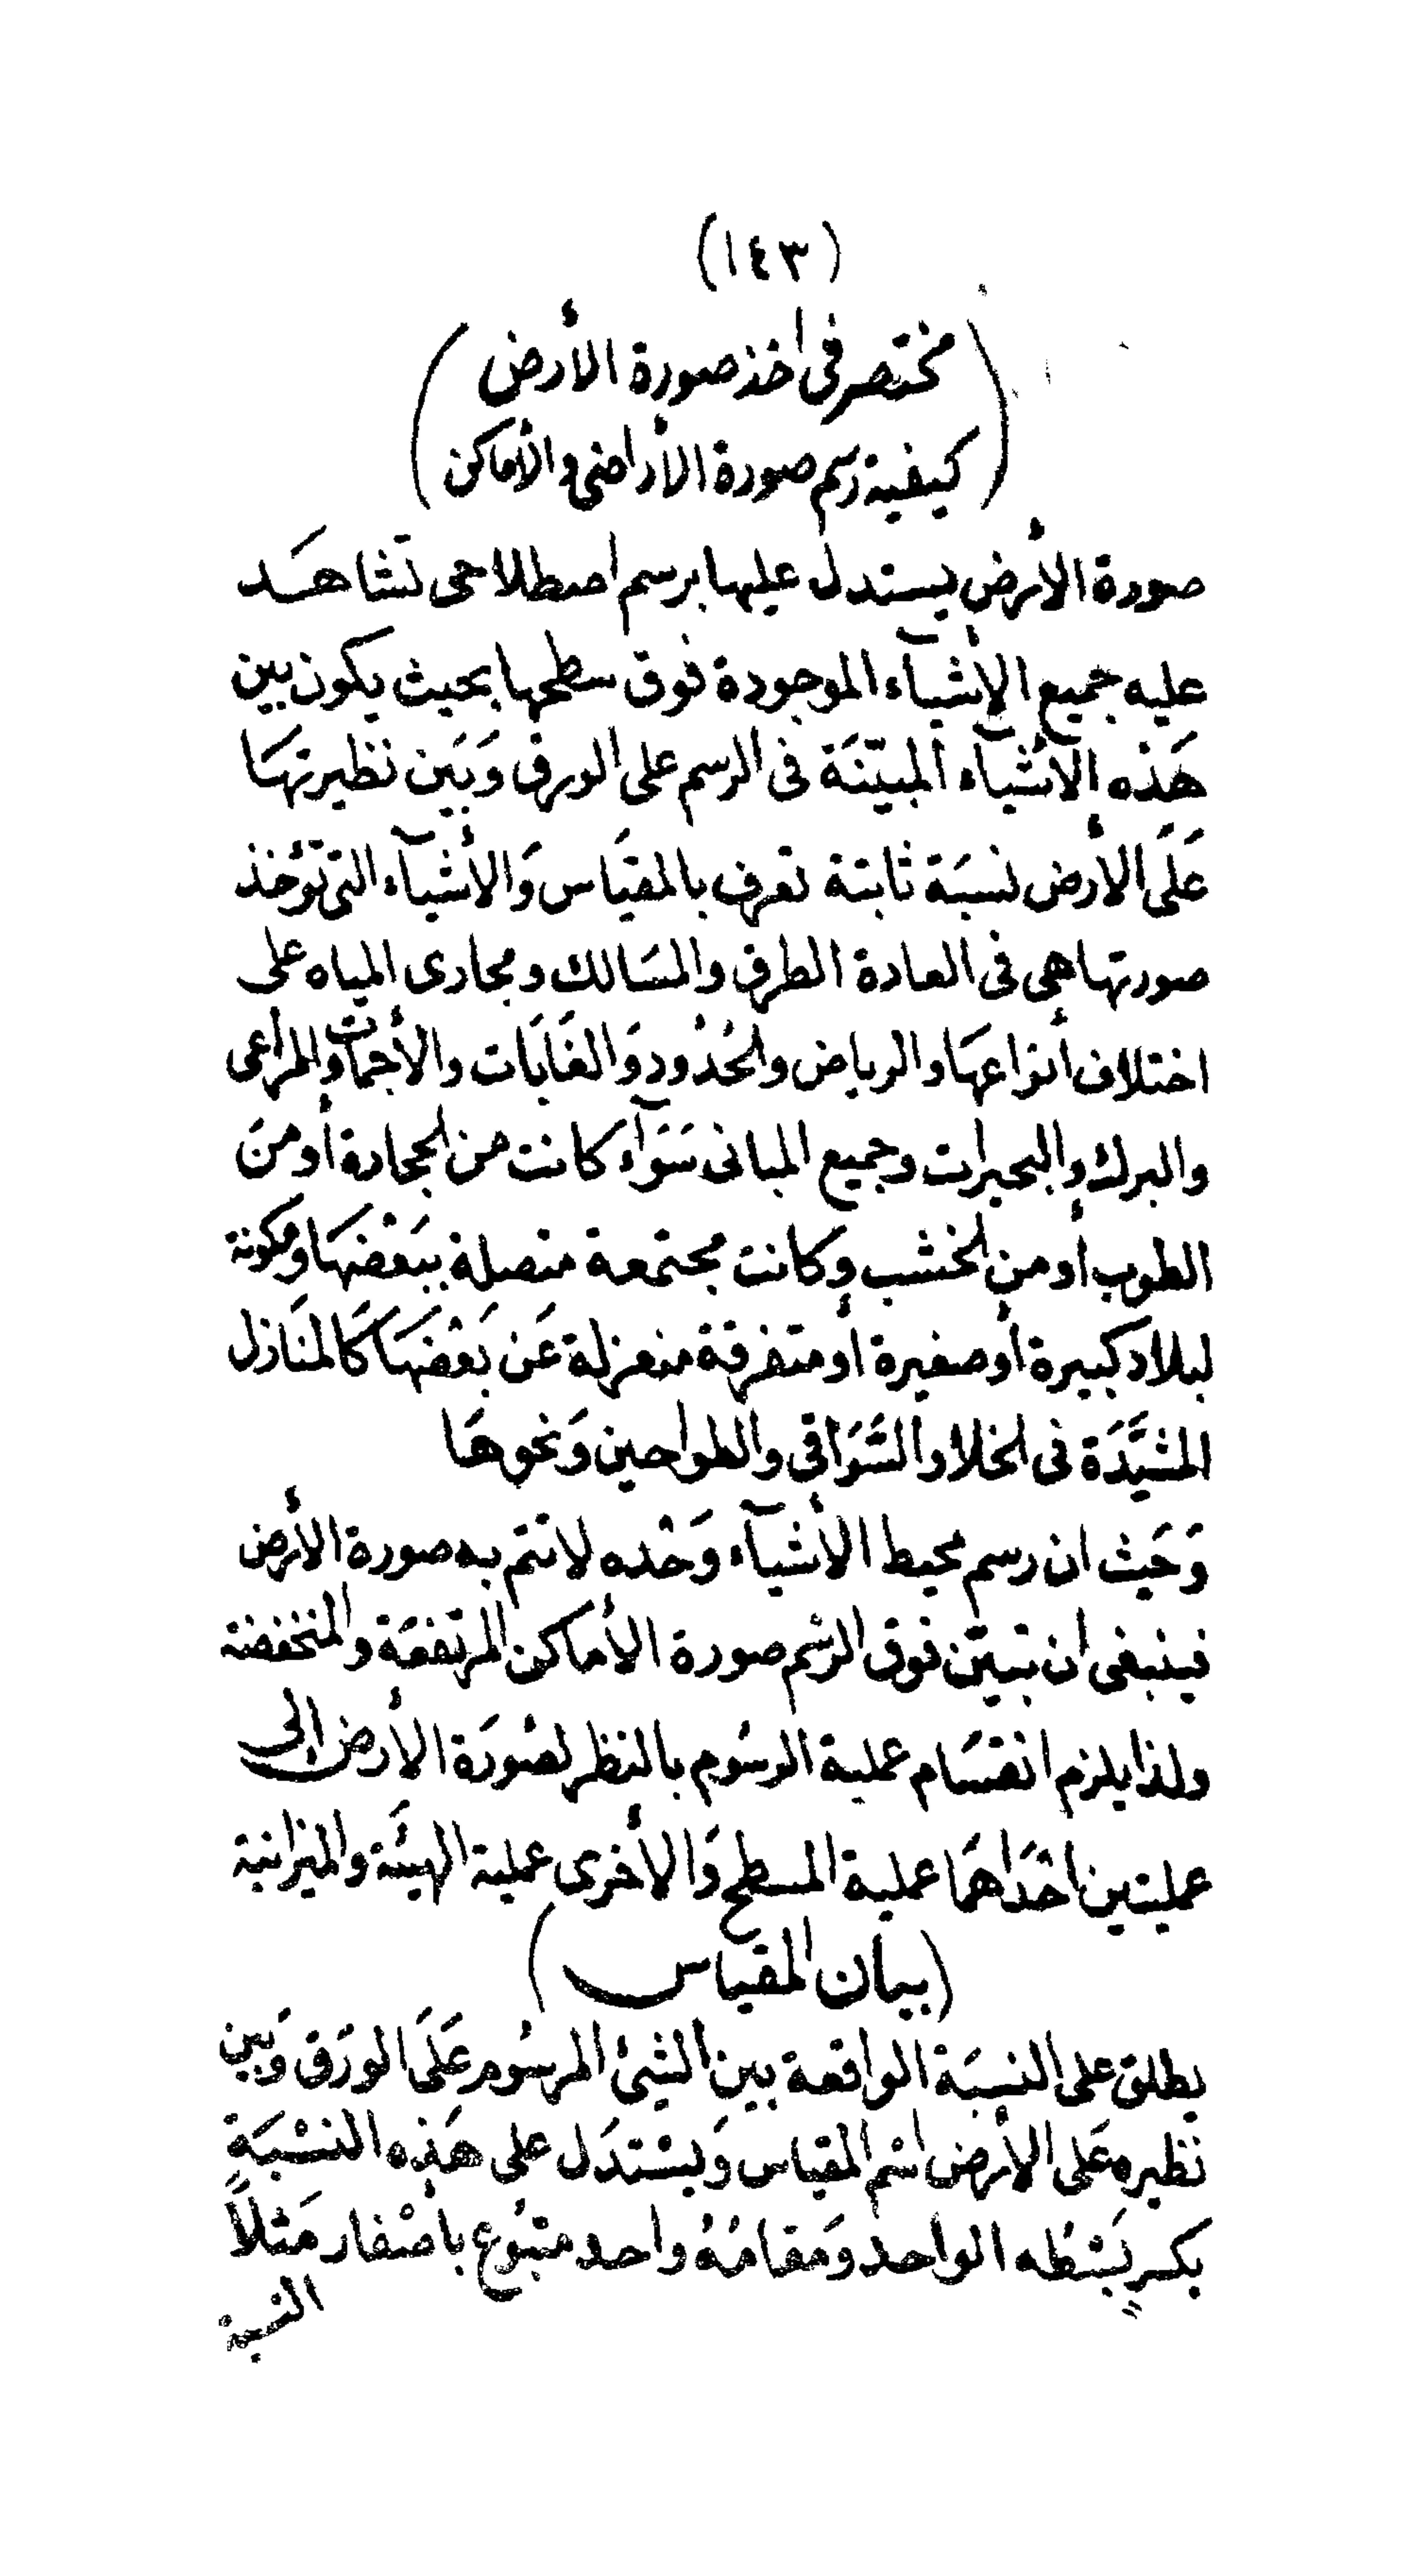 (١٤٣)
(مختصر فى اخذ صورة الأرض
كيفية رسم صورة الأراضى والأماكن)
صورة الأرض يستدل عليها برسم اصطلاحى تشاهَد
عليه جميع الأشيآء الموجودة فوق سطحها بحيث يكون بين
هَذه الأشيآء المبيّنَة فى الرسم على الورق وَبَين نظيرتهَا
عَلَى الأرض نسبَة ثابتة تعرف بالمقيَاس وَالأشيآء التى تؤخذ
صورتها هى فى العادة الطرق والمسَالك ومجارى المياه على
اختلاف أنواعهَا والرياض والحُدُود وَالغَابَات والأجمات والمراعى
والبرك والبحيرات وجميع المبانى سَوَآء كانت من الحجارة أو منَ
الطوب أو من الخشب وكانت مجتمعة متصلة ببَعْضهَا ومكونة
لبلاد كبيرة أو صغيرة أو متفرقة منعزلة عَن بَعْضهَا كَالمنَازل
المشيَّدَة فى الخلا والسَّوَاقى والطواحين وَنحوهَا
وَحَيث ان رسم محيط الأشيآء وَحْده لا تتم به صورة الأرض
فينبغى ان تبيّن فوق الرسْم صورة الأماكن المرتفعَة والمنخفضة
ولذا يلزم انقسَام عملية الرسُوم بالنظر لصُورَة الأرض إلى
عمليتين احْدَاهمَا عملية المسطح وَالأخرى عملية الهيئَة والميزانية
(بيان المقياس)
يطلق على النسبَة الواقعة بين الشئ المرسُوم عَلَى الورَق وَبَين
نظيره عَلى الأرض اسْم المقياس وَيسْتدَل على هَذه النسْبَة
بكسر بَسْطه الواحد وَمَقامُهُ واحد متبُوع بأصْفار مَثلاً
النسبة